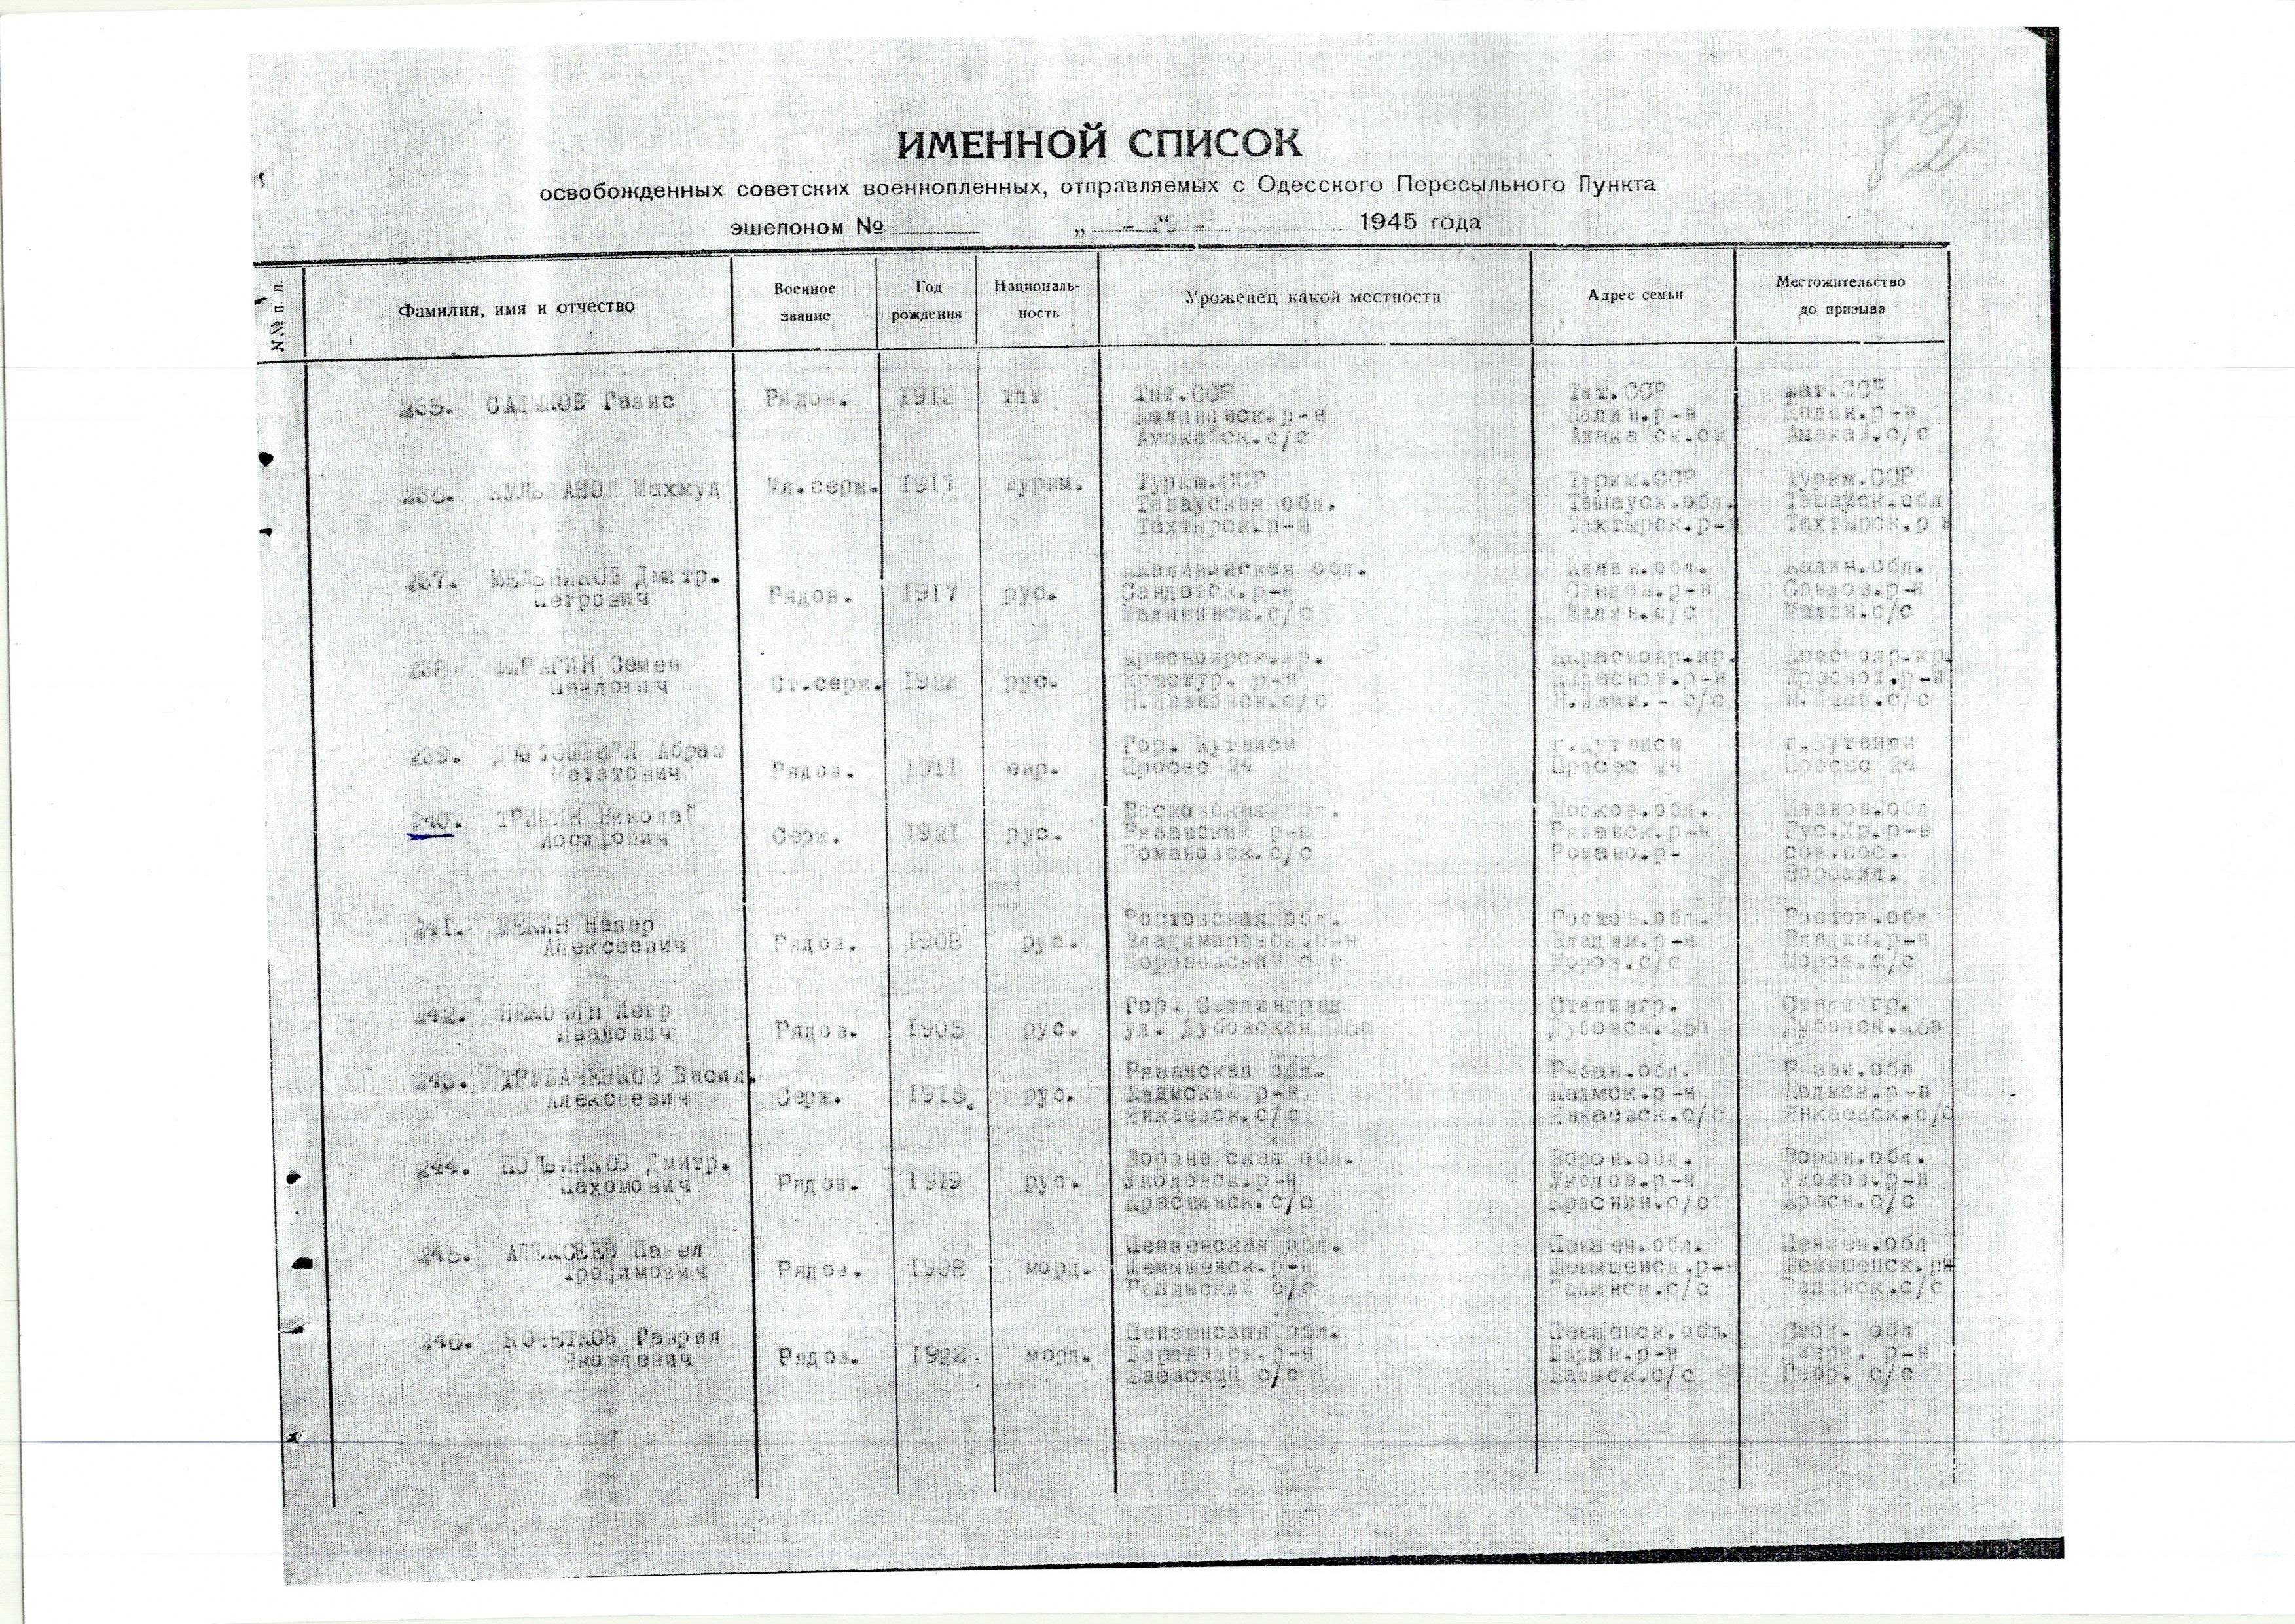 82
ИМЕННОЙ СПИСОК
освобожденных советских военнопленных, отправляемых с Одесского Пересыльного Пункта
эшелоном № „ “ 1945 года
№№ п. п.
Фамилия, имя и отчество
Военное звание
Год рождения
Националь-ность
Уроженец какой местности
Адрес семьи
Местожительство до призыва
235. САДЫКОВ Газис Рядов. 1912 тат Тат.ССР Тат.ССР тат.ССР
Калининск.р-н Калин.р-н Калин.р-н
с/с Амакай.с/с
236. Махмуд Мл.серж. 1917 туркм. Туркм.ССР Туркм.ССР Туркм.ССР
обл. Ташауск.обл. обл
Тахтырск.р-н Тахтырск.р- Тахтырск.р н
237. МЕЛЬНИКОВ Дмитр. обл. Калин.обл. Калин.обл.
Петрович Рядов. 1917 рус. Сандовск.р-н Сандов.р-н Сандов.р-н
с/с Малин.с/с Малин.с/с
238. Семен Красноярск.кр. кр. Краснояр.кр.
Павлович Ст.серж. рус. р-н р-н Краснот.р-н
Н.Ивановск.с/с Н.Иван.- с/с Н.Иван.с/с
239. Абрам Гор. Кутаиси г.Кутаиси г.Кутаиси
Мататович Рядов. 1911 евр. Просес 24 Просес 24 Просес 24
240. ТРИШИН Николай Московская обл. Москов.обл. Иванов.обл
Иосифович Серж. 1921 рус. Рязанский р-н Рязанск.р-н Гус.Хр.р-н
Романовск.с/с Романо.р- сов.пос.
Ворошил.
241. Назар Ростовская обл. Ростов.обл. Ростов.обл
Алексеевич Рядов. 1908 рус. Владимировск.р-н Владим.р-н Владим.р-н
Морозовский с/с Мороз.с/с Мороз.с/с
242. Петр Гор. Сталинград Сталингр. Сталингр.
Иванович Рядов. 1905 рус. ул. Дубовская Дубовск. Дубовск.
243. ТРУБАЧЕНКОВ Васил. Рязанская обл. Рязан.обл. Рязан.обл
Алексеевич Серж. 1915. рус. Кадмский р-н Кадмск.р-н Кадмск.р-н
Янкаевск.с/с Янкаевск.с/с Янкаевск.с/с
244. Дмитр. обл. Ворон.обл. Ворон.обл.
Пахомович Рядов. 1919 рус. Уколовск.р-н Уколов.р-н Уколов.р-н
с/с Краснин.с/с Красн.с/с
245. АЛЕКСЕЕВ Павел Пензенская обл. Пензен.обл. Пензен.обл
Трофимович Рядов. 1908 морд. Шемышенск.р-н Шемышенск.р-н Шемышевск.рн
Рапинский с/с Рапинск.с/с Рапинск.с/с
246. КОЧЕТКОВ Гаврил Пензенская обл. Пензенск.обл. Смол. обл
Яковлевич Рядов. 1922. морд. Барановск.р-н Баран.р-н р-н
Баевский с/с Баевск.с/с с/с